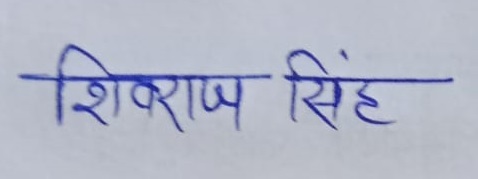 शिवराज सिंह